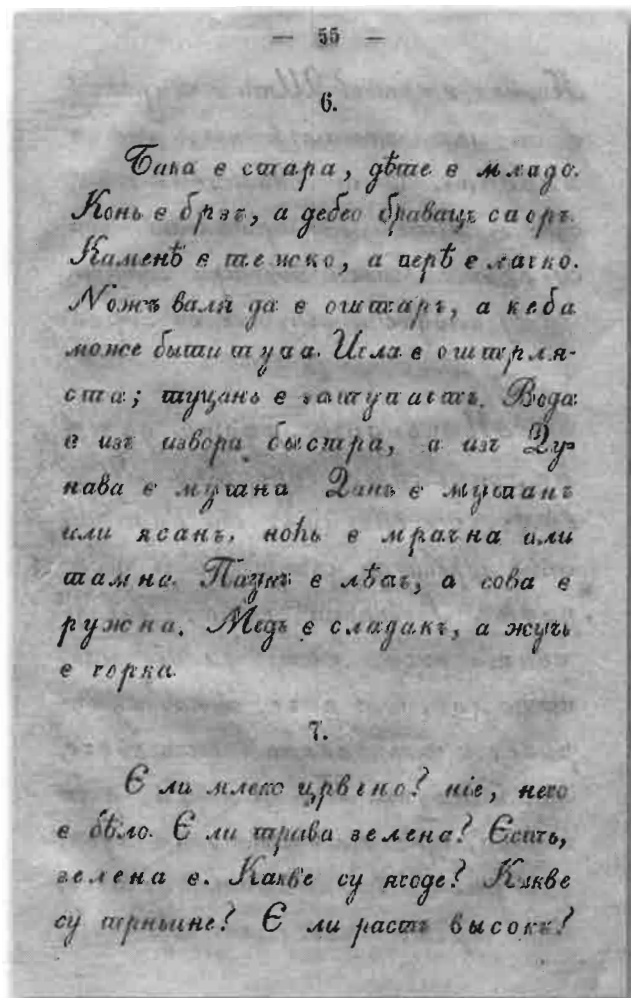 — 55 —
6.
Бака е стара, дѣте е младо.
Конь е брзъ, а дебео браваць споръ.
Каменѣ е тежко, а перѣ е лагко.
Ножъ валя да е оштаръ, а кеба
може быти тупа. Игла е оштрля-
ста; туцань е затупастъ. Вода
е изъ извора быстра, а изъ Ду-
нава е мутна Данъ е мутанъ
или ясанъ, ноћь е мрачна или
тамна. Паунъ е лѣпъ, а сова е
ружна. Медъ е сладакъ, а жучь
е горка
7.
Є ли млеко црвено? ніе, него
е бѣло. Є ли трава зелена? Єсть,
зелена е. Какве су ягоде? Какве
су трньине? Є ли растъ высокъ?